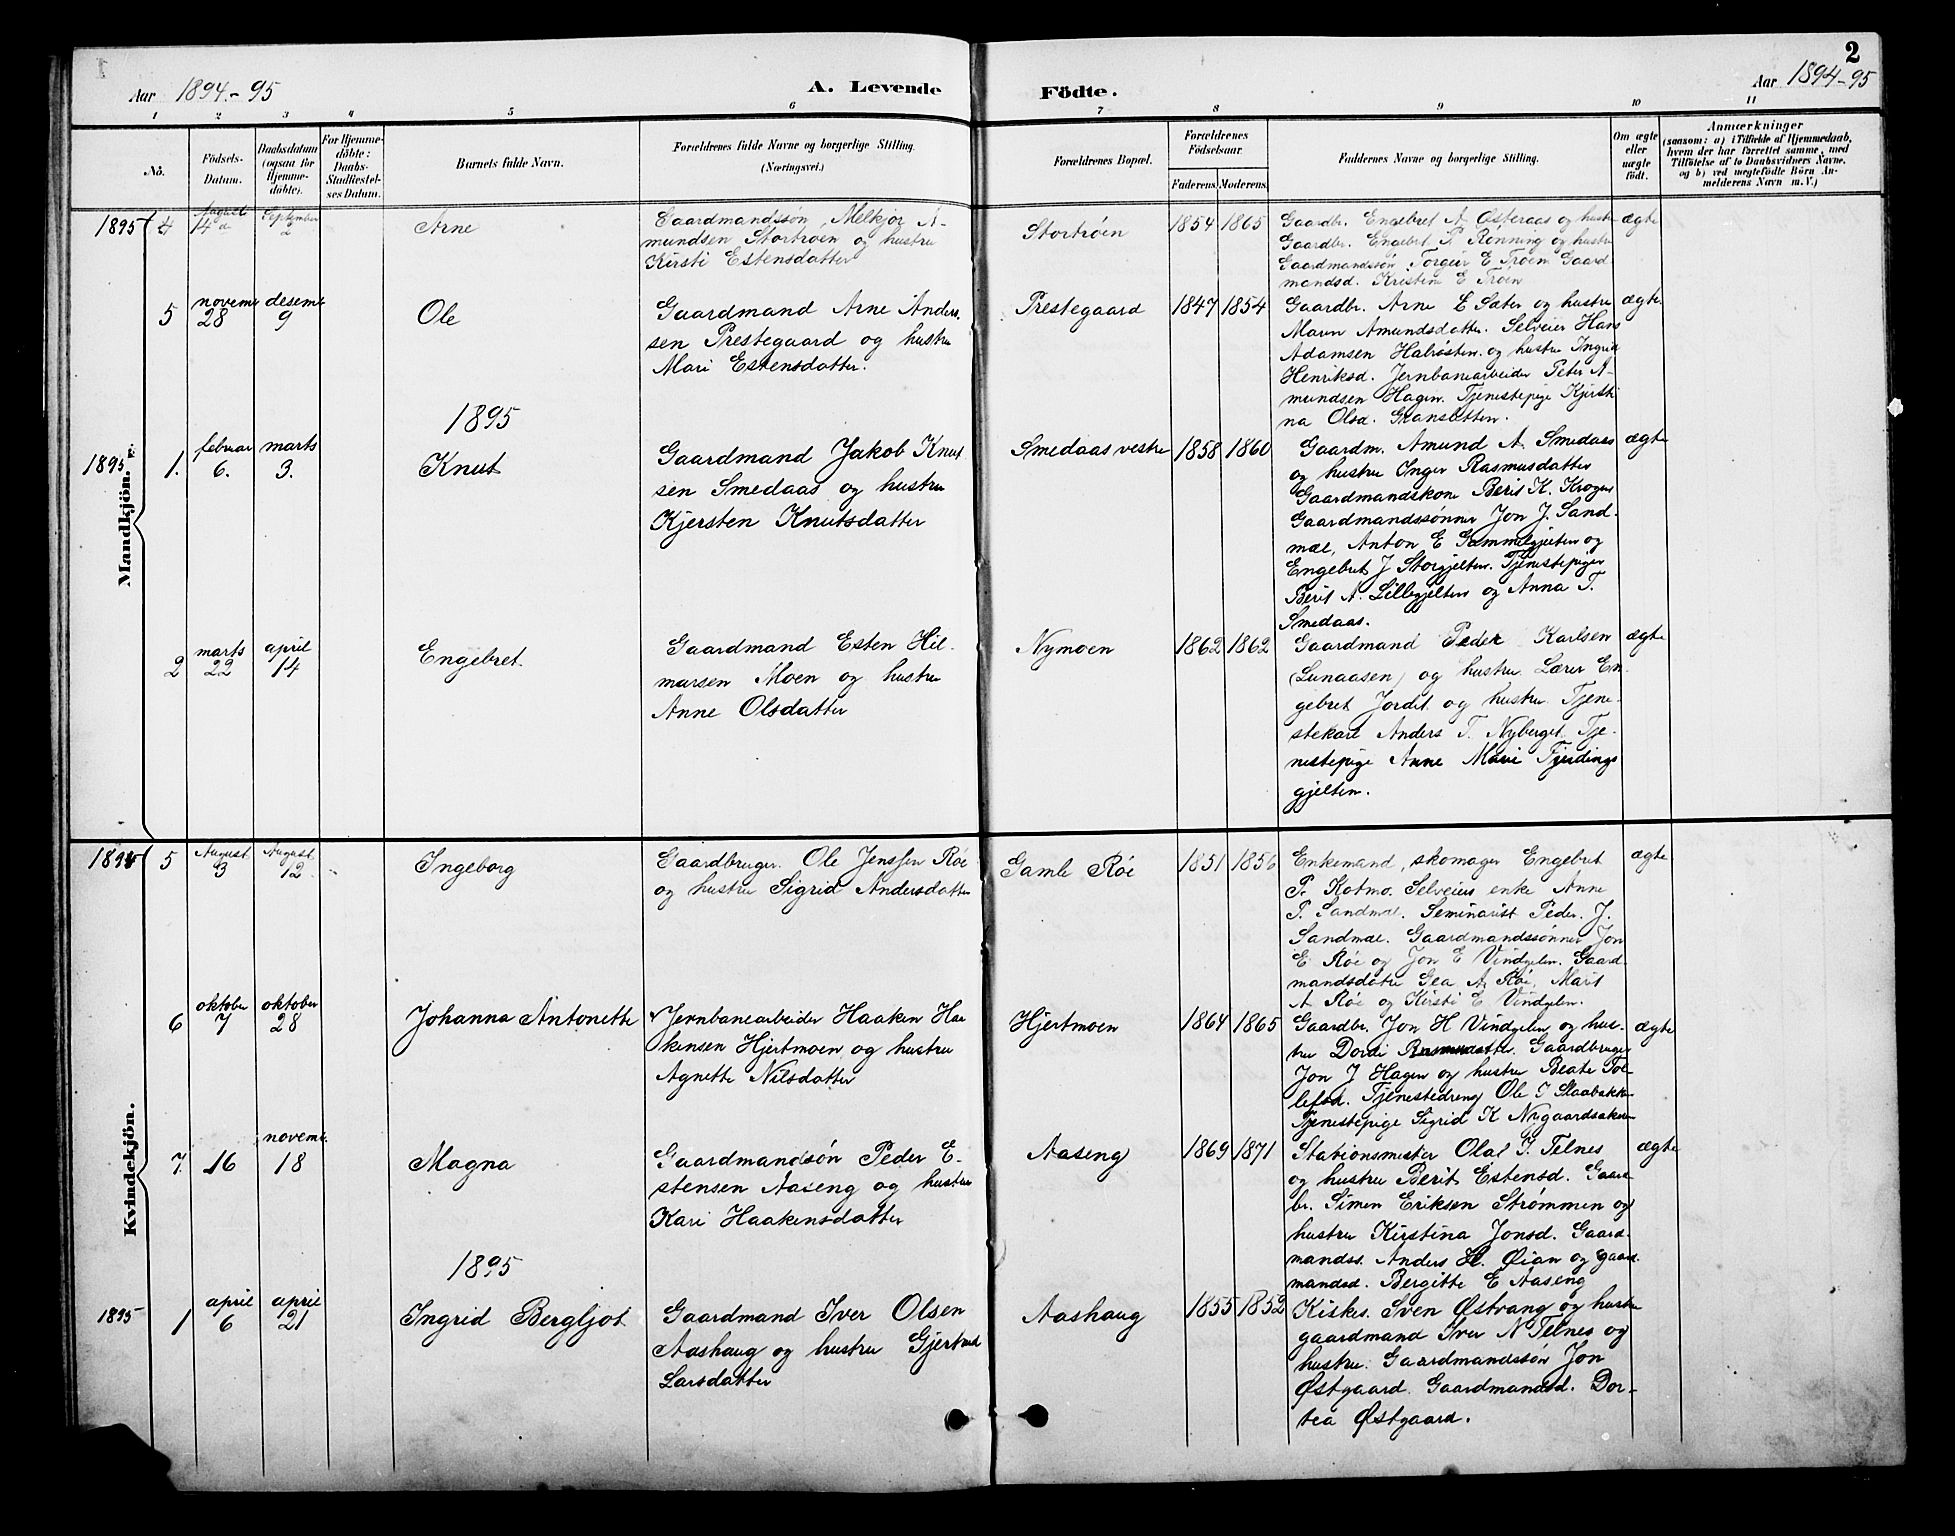 2
Aar 1894.-95
A. Levende
Födte.
Aar 1894-95
1 2 3 4 5 6 7 8 9 10 11
No.
Födsels-
Datum.
Daabsdatum
(ogsaa för
Hjemme-
döbte).
For Hjemme-
döbte:
Daabs-
Stadfæstel-
ses Datum.
Barnets fulde Navn.
Forældrenes fulde Navne og borgerlige Stilling.
(Næringsvei.)
Forældrenes Bopæl.
Forældrenes
Födselsaar.
Faderens.
Moderens.
Faddernes Navne og borgerlige Stilling.
Om ægte
eller
uægte
födt.
Anmærkninger
(saasom: a) i Tilfælde af Hjemmedaab,
hvem der har forrettet samme, med
Tilföielse af to Daabsvidners Navne,
og b) ved uegtefödte Börn An-
melderens Navn m. V.)
Mandkjön.
1895 4
August
14
September
2
Arne
Gaardmandssön Melkjor A-
mundsen Stortröen og hustru
Kirsti Estensdatter
Stortröen
1854 1865
Gaardbr. Engebret A Østeraas og hustru
Gaardbr. Engebret P. Rønning og hustru
Gaardmandssön Torgeir E Trøen Gaard
mandsd. Kristine E Trøen
ægte
5
novemr
28
desemr
9
Ole
Gaardmand Arne Anders.
sen Prestegaard og hustru
Mari Estensdatter.
Prestegaard
1847 1854
Gaardbr. Arne E Sæter og hustru
Maren Amundsdatter. Selveier Hans
Adamsen Halvösten. og hustru Ingrid
Henriksd. Jernbanearbeider Peter A-
mundsen Hagen. Tjenestepige Kjersti
na Olsd. Granslætten.
ægte
1895
1895
1.
februar
6.
marts
3.
Knut
Gaardmand Jakob Knut
sen Smedaas og hustru
Kjersten Knutsdatter
Smedaas vestre
1858 1860
Gaardm. Amund A. Smedaas
og hustru Inger Rasmusdatter
Gaardmandskone Berit K. Krogen
Gaardmandssønner Jon J. Sand-
mæl, Anton E Gammelgjelten og
Engebret J Storgjelten. Tjenestepiger
Berit A. Lillegjelten og Anna T.
Smedaas.
ægte
2
marts
22
april
14
Engebret
Gaardmand Esten Hil-
marsen Moen og hustru
Anne Olsdatter
Nymoen
1862 1862
Gaardmand Peder Karlsen
(Lunaasen) og hustru. Lærer En-
gebret Jordet og hustru Tjene-
stekarl Anders T. Nyberget. Tje-
nestepige Anne Marie Fjerdings
gjelten.
ægte
Kvindekjön.
1894
5
August
3
August
12
Ingeborg
Gaardbruger. Ole Jenssen Röe
og hustru Sigrid Andersdatter
Gamle Röe
1851 1856
Enkemand, skomager Engebret
P. Kotmo. Selveiers enke Anne
P. Sandmæl. Seminarist Peder. J.
Sandmæl. Gaardmandssønner Jon
E Røe og Jon E Vindgelen. Gaard-
mandsdøtre Gea A Røe, Marit
A Røe og Kirsti E Vindgelen.
ægte
6
oktober
7
oktober
28
Johanna Antonette
Jernbanearbeider Haaken Haa
kensen Hjertmoen og hustru
Agnette Nilsdatter
Hjertmoen
1864 1865
Gaardbr. Jon H Vindgelen og hus-
tru Dordi Rasmusdatter. Gaardbruger
Jon J Hagen og hustru Beate Tol-
lefsd. Tjenestedreng Ole T Slaabakken
Tjenestepige Sigrid K Nygaardsaker
ægte
7.
16
novemr.
18
Magna
Gaardmandsön Peder E-
stensen Aaseng og hustru
Kari Haakensdatter
Aaseng
1869 1871
Stationsmester Olaf J. Telnes
og hustru Berit Estensd. Gaard
br. Simen Eriksen Strømmen og
hustru Kirstina Jonsd. Gaard-
mandss. Anders H. Øian og gaard-
mandsd. Bergitte E Aaseng
ægte
1895
1895
1
april
6
april
21
Ingrid Bergljot
Gaardmand Iver Olsen
Aashaug og hustru Gjertrud
Larsdatter
Aashaug
1855 1852
Kirkes. Sven Østvang og hustru
gaardmand Iver N Telnes og
hustru. Gaardmandssön Jon
Østgaard. Gaardmandsd. Dor-
tea Østgaard.